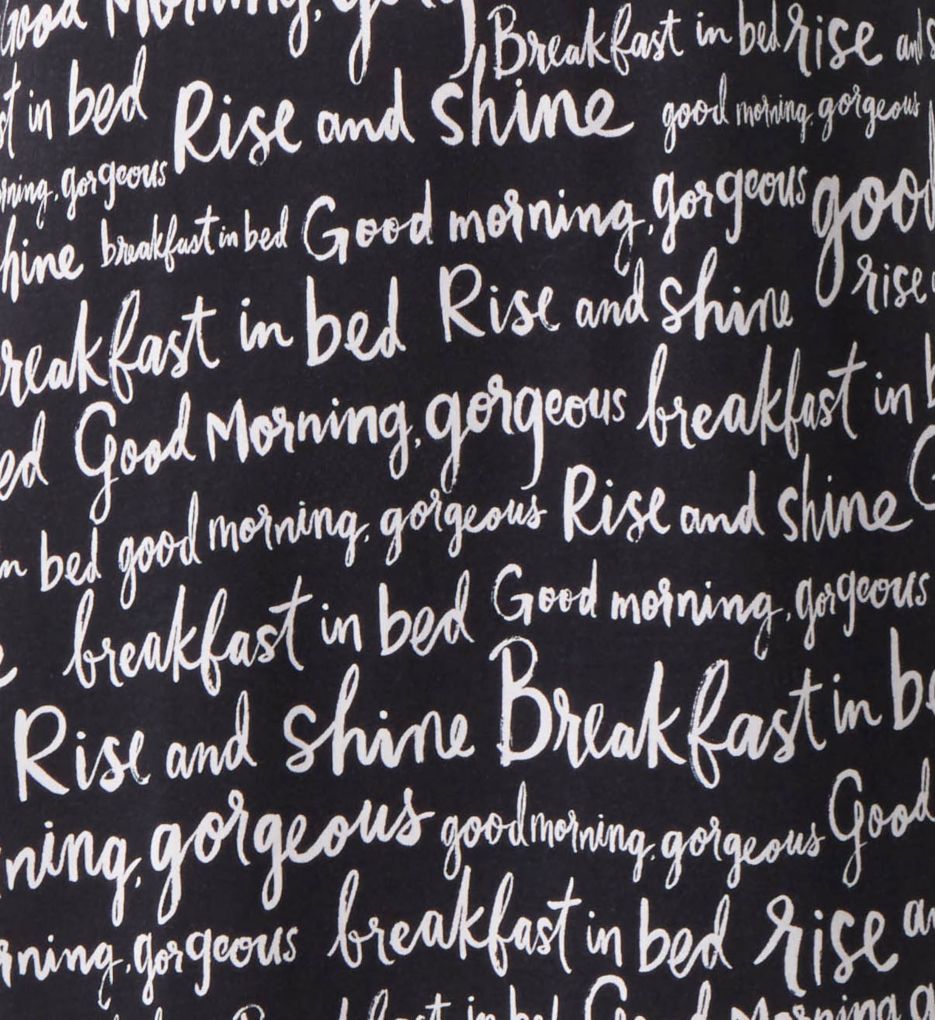 Good Morning, Breakfast in bed rise and
in bed Rise and shine good morning, gorgeous
gorgeous
breakfast in bed Good morning, gorgeous good
rise
breakfast in bed Rise and shine
Good Morning, gorgeous breakfast in
in bed good morning, gorgeous Rise and shine
breakfast in bed Good morning, gorgeous
Rise and shine Breakfast in
gorgeous good morning, gorgeous Good
gorgeous breakfast in bed rise